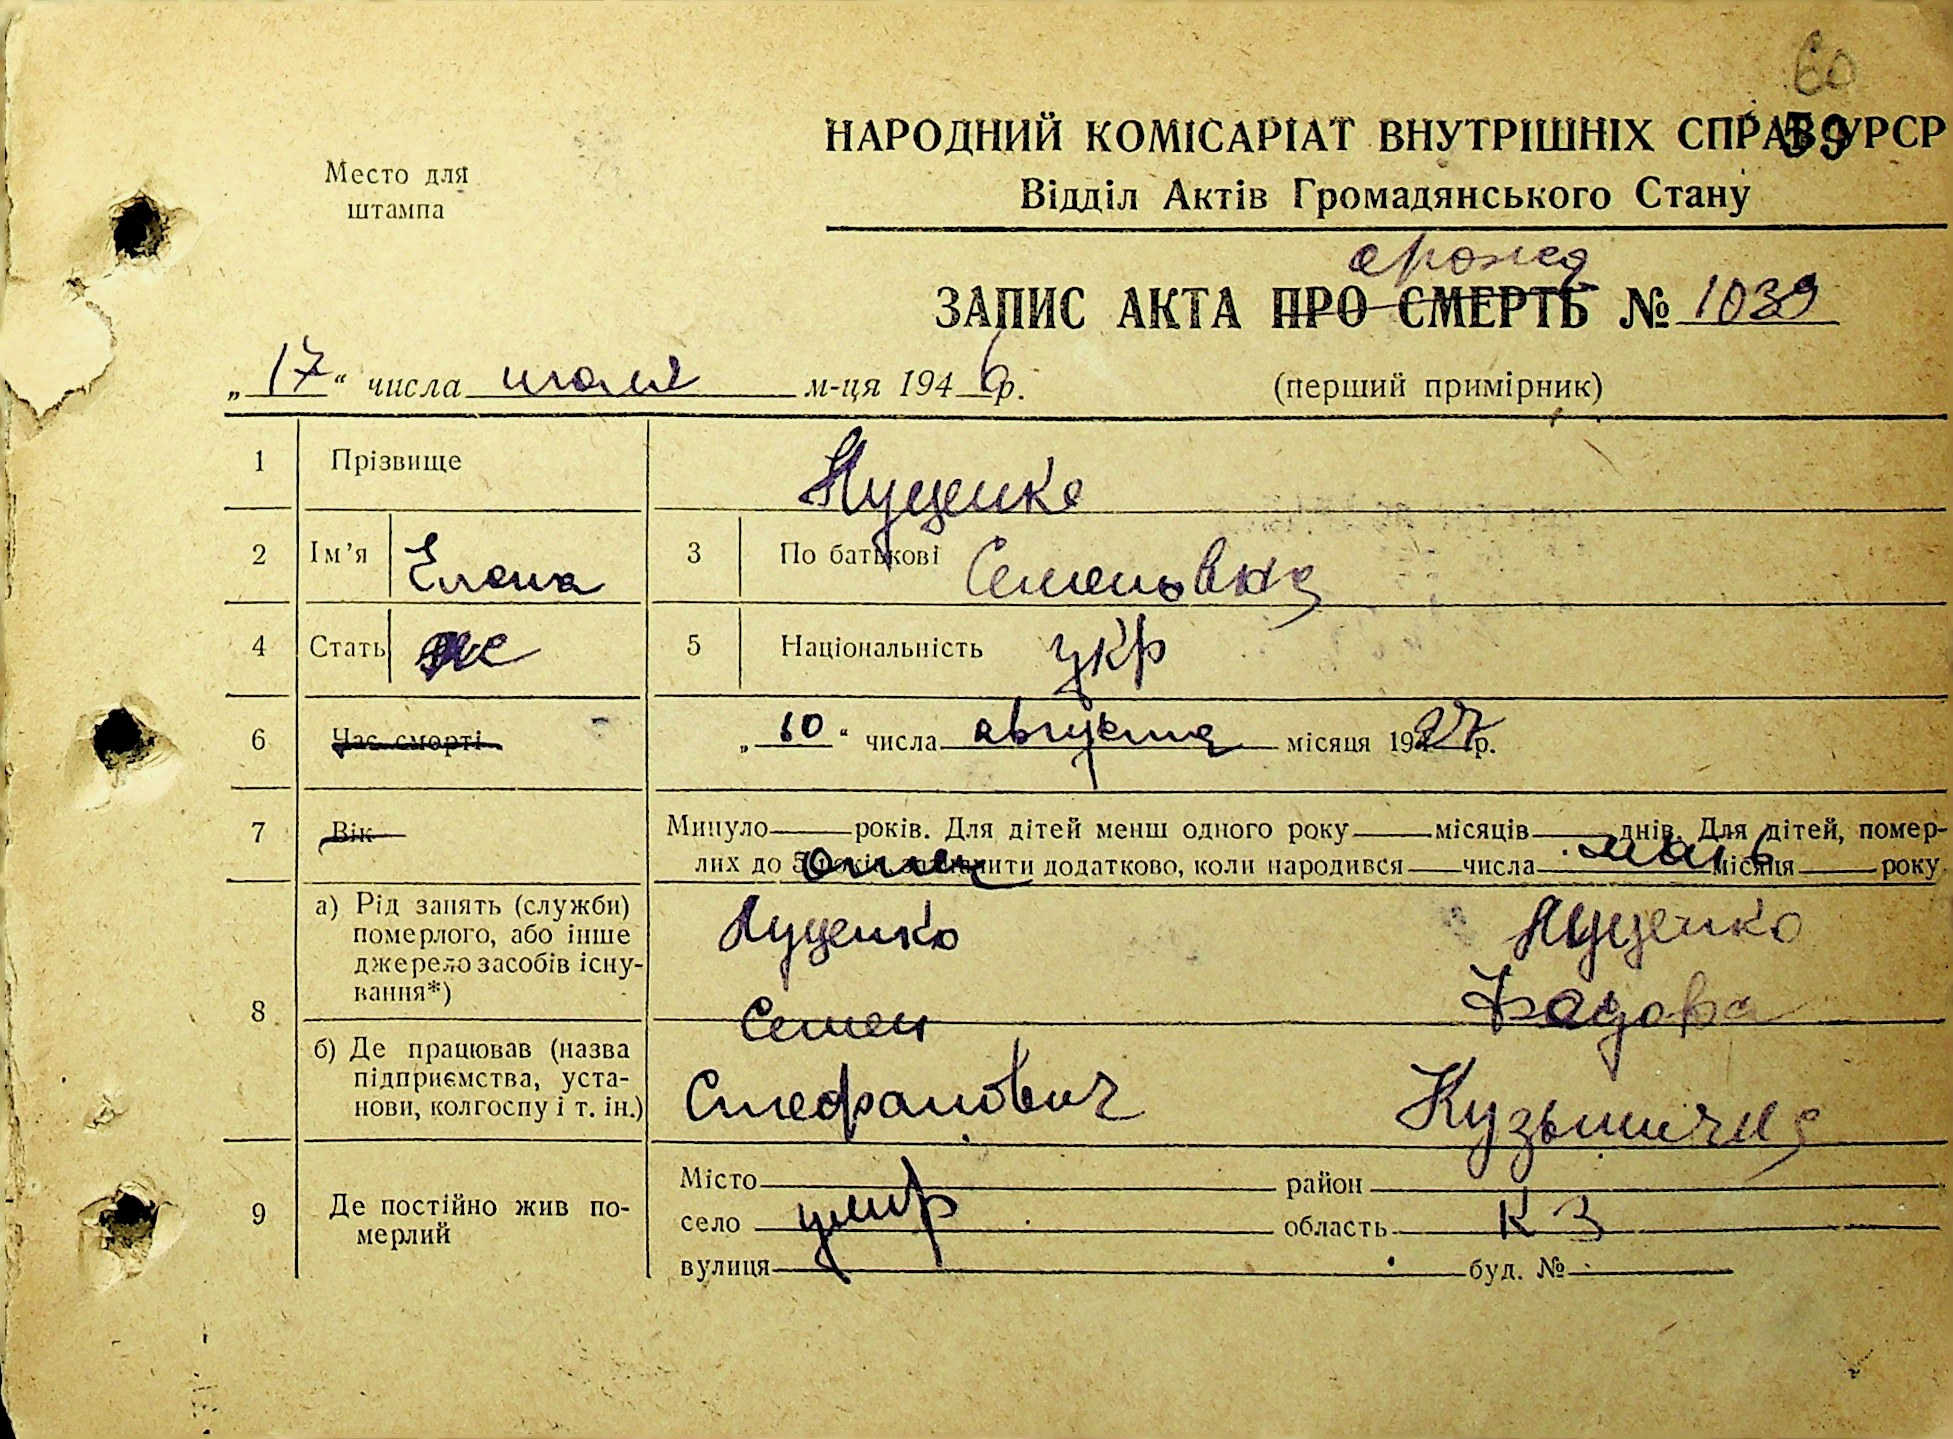 60
НАРОДНИЙ КОМІСАРІАТ ВНУТРІШНІХ СПРАВ УРСР
59
Место для
штампа
Відділ Актів Громадянського Стану
о рожд
ЗАПИС АКТА ПРО СМЕРТЬ № 1039
„17“ числа июля м-ця 1946р.
(перший примірник)
1 Прізвище Луценко
2 Ім'я Елена 3 По батькові Семеновна
4 Стать ж 5 Національність укр
6 Час смерті „10“ числа августа місяця 1927р.
7 Вік Минуло ___ років. Для дітей менш одного року ___ місяців ___ днів. Для дітей, помер-
лих до 5 років зазначити додатково, коли народився ___ числа ___ місяця ___ року
отец мать
8 а) Рід занять (служби)
померлого, або інше
джерело засобів існу-
вання*)
Луценко Луценко
Семен
б) Де працював (назва
підприємства, уста-
нови, колгоспу і т. ін.)
Стефанович Кузьминична
9 Де постійно жив по-
мерлий
Місто район
село область К З
вулиця буд. №